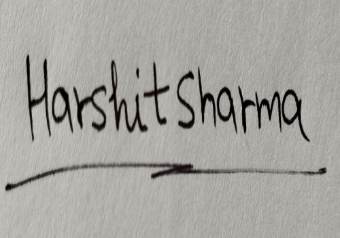 Harshit Sharma